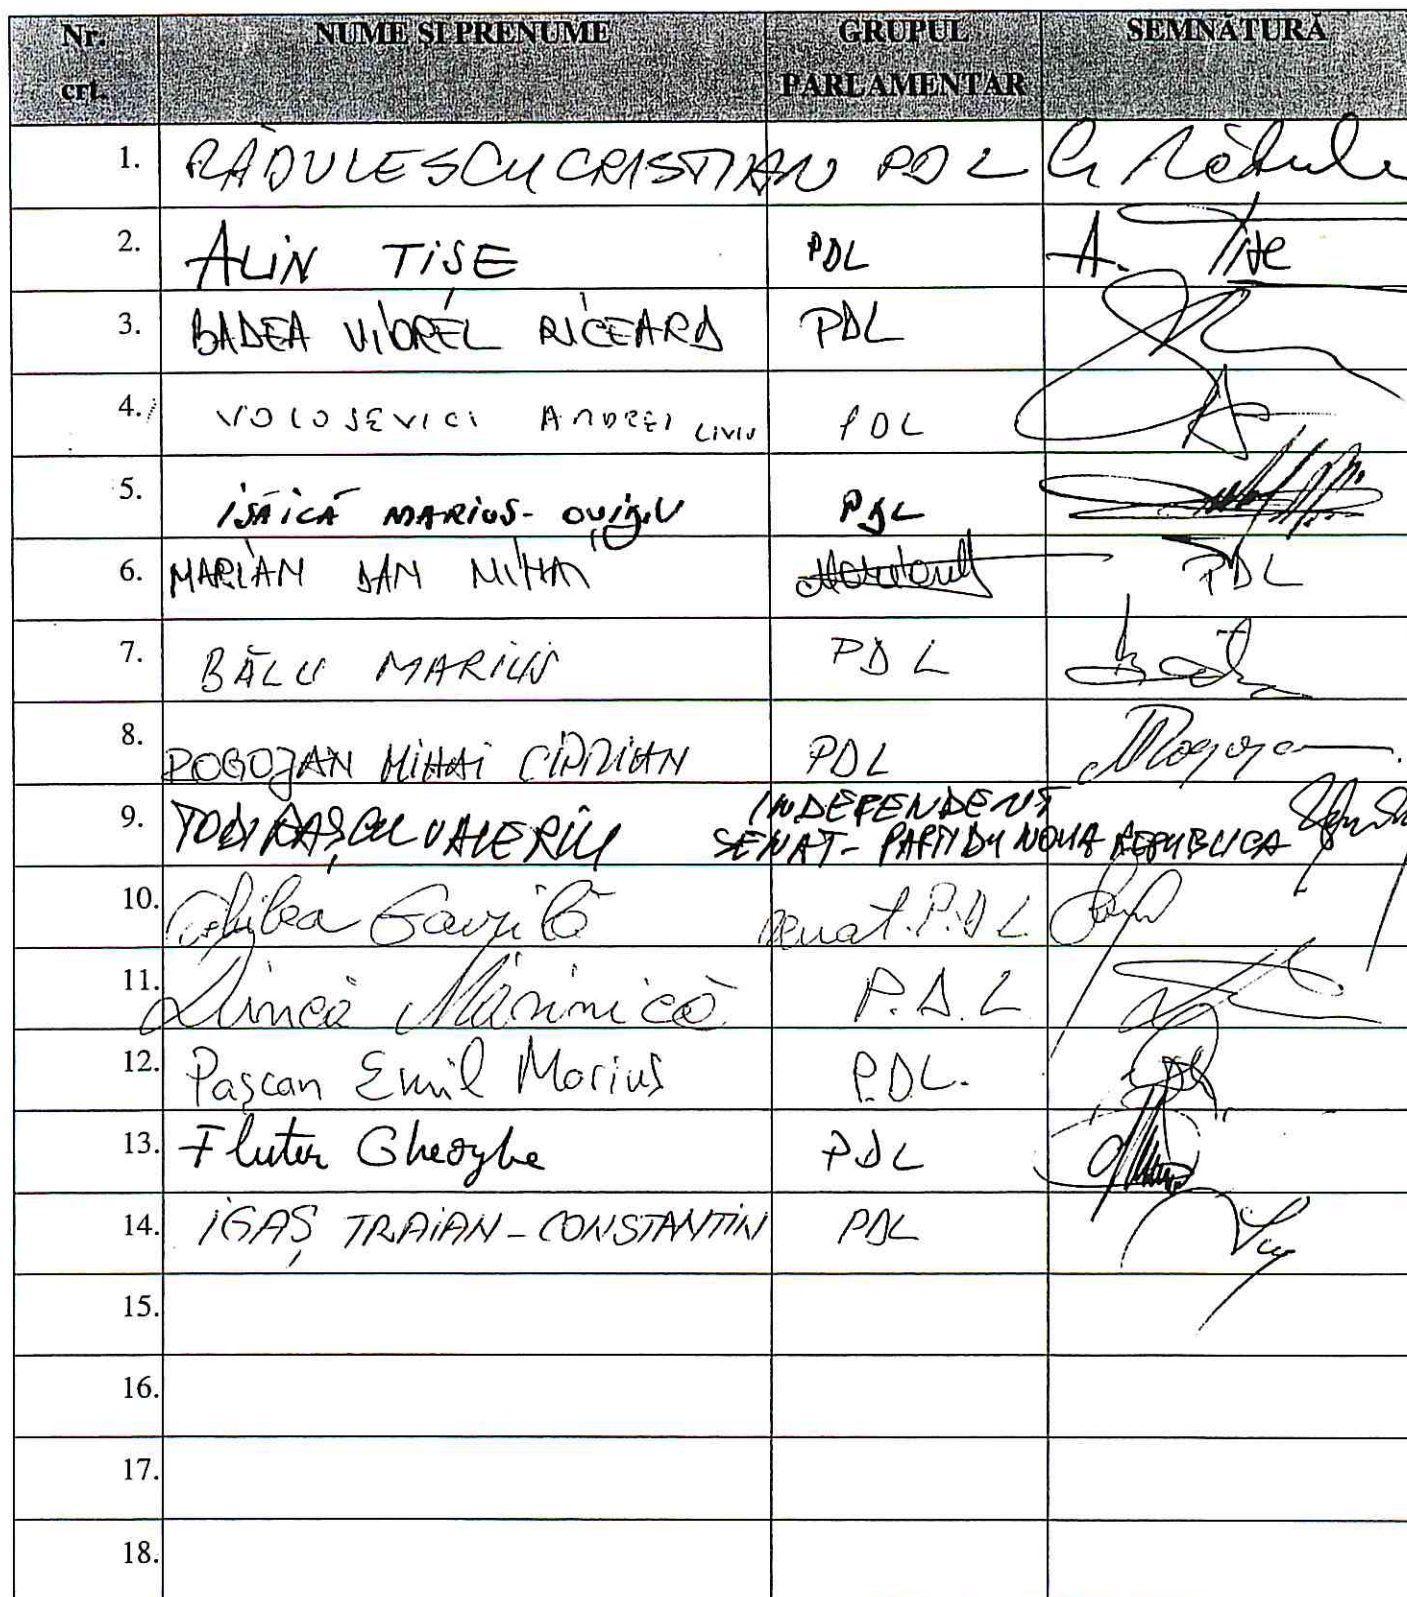 Nr. crt. NUME ȘI PRENUME GRUPUL PARLAMENTAR SEMNĂTURĂ
1. RĂDULESCU CRISTIAN PDL
2. ALIN TIȘE PDL A. Tișe
3. BADEA VIOREL RICEARD PDL
4. VOLOSEVICI ANDREI LIVIU PDL
5. ISĂICĂ MARIUS-OVIDIU PDL
6. MARIAN DAN MIHAI PDL
7. BĂLU MARIUS PDL
8. POGOJAN MIHAI CIPRIAN PDL
9. TODIRAȘCU VALERIU INDEPENDENT
SENAT - PARTIDU NOUA REPUBLICA
10. Ghilea Gavrilă senat. P.D.L
11. Dincă Mărinică P.D.L
12. Pașcan Emil Marius P.D.L.
13. Flutur Gheorghe PDL
14. IGAȘ TRAIAN-CONSTANTIN PDL
15.
16.
17.
18.